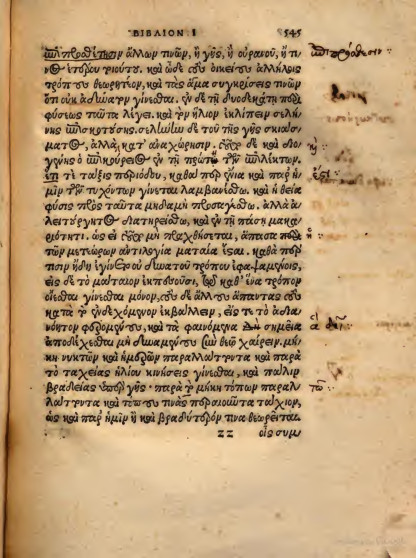 ΒΙΒΛΙΟΝ Ι 545
ἄλλων τινῶν, ἢ γῆς, ἢ οὐρανοῦ, ἤ τι
νος ἑτέρου τοιούτου. καὶ ὧδε τοὺς οἰκείους ἀλλήλοις
τρόπους θεωρητέον, καὶ τὰς ἅμα συγκρίσεις τινῶν
ὅτι οὐκ ἀδύνατον γίνεσθαι. ἐν δὲ τῇ δωδεκάτῃ περὶ
φύσεως ταῦτα λέγει. καὶ τὸν ἥλιον ἐκλίπειν σελή
νης ἐπισκοτούσης. σελήνην δὲ τοῦ τῆς γῆς σκιάσ
ματος, ἀλλὰ κατ' ἀναχώρησιν. τοῦτο δὲ καὶ διο
γένης ὁ ἐπικούρειος ἐν τῇ πρώτῃ τῶν ἐπιλέκτων.
ἐπὶ τε τάξις περιόδου, καθάπερ ἔνια καὶ παρ' ἡ
μῖν τῶν τυχόντων γίνεται λαμβανέσθω. καὶ ἡ θεία
φύσις πρὸς ταῦτα μηδαμῆ προσαγέσθω. ἀλλὰ ἀ
λειτούργητος διατηρείσθω, καὶ ἐν τῇ πάσῃ μακα
ριότητι. ὡς εἰ τοῦτο μὴ πραχθήσεται, ἅπασα περὶ
τῶν μετεώρων αἰτιλογία ματαία ἔσται. καθάπερ
τισὶν ἤδη ἐγίνετο οὐ δυνατοῦ τρόπου ἐφαψαμένοις,
εἰς δὲ τὸ μάταιον ἐκπεσοῦσι, τῷ καθ' ἕνα τρόπον
οἴεσθαι γίνεσθαι μόνον, τοὺς δὲ ἄλλους ἅπαντας τοὺς
κατὰ τὸ ἐνδεχόμενον ἐκβάλλειν, εἴς τε τὸ ἀδια
νόητον φερομένους, καὶ τὰ φαινόμενα σημεῖα
ἀποδέχεσθαι μὴ δυναμένους σὺν θεῷ χαίρειν. μή
κη νυκτῶν καὶ ἡμερῶν παραλλάττοντα καὶ παρὰ
τὸ ταχείας ἡλίου κινήσεις γίνεσθαι, καὶ πάλιν
βραδείας ὑπὲρ γῆς· παρὰ τὸ μήκη τόπων παραλ
λάττοντα καὶ τόπους τινὰς περαιοῦντα τάχιον,
ὡς καὶ παρ' ἡμῖν ἢ καὶ βραδύτερόν τινα θεωρεῖται.
ΖΖ οἷς συμ